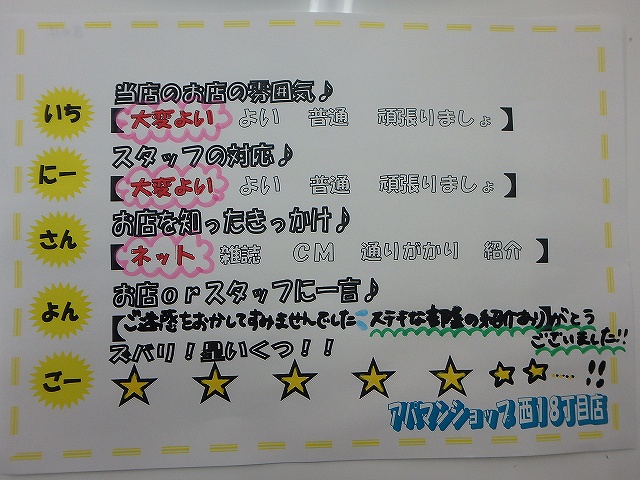 いち 当店のお店の雰囲気♪
【大変よい よい 普通 頑張りましょ】
にー スタッフの対応♪
【大変よい よい 普通 頑張りましょ】
さん お店を知ったきっかけ♪
【ネット 雑誌 CM 通りがかり 紹介 】
よん お店orスタッフに一言♪
【ご迷惑をおかしてすみませんでした ステキなお部屋の紹介ありがとう
ございました!!
ごー ズバリ!星いくつ!!
★ ★ ★ ★ ★ ★ ★ …… !!
アパマンショップ西18丁目店